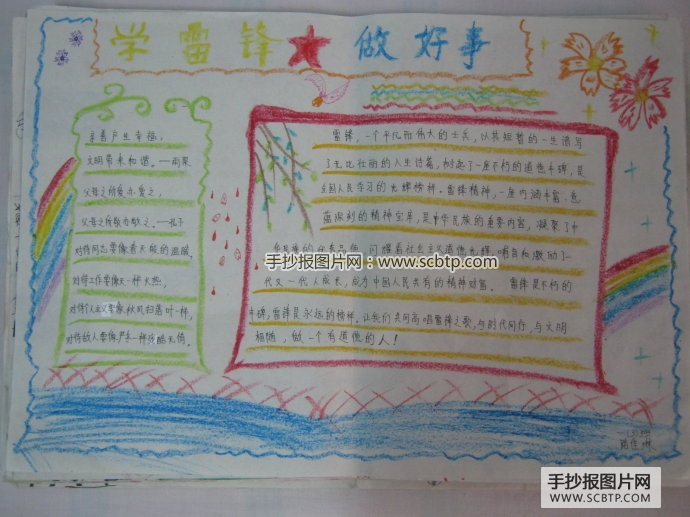 学雷锋★做好事
亲善产生幸福,
文明带来和谐。——雨果
父母之所爱亦爱之,
父母之所敬亦敬之。——孔子
对待同志要像春天般的温暖,
对待工作要像夏天一样火热,
对待个人主义要像秋风扫落叶一样,
对待敌人要像严冬一样残酷无情。
雷锋,一个平凡而伟大的士兵,以其短暂的一生谱写
了无比壮丽的人生诗篇,树起了一座不朽的道德丰碑,是
全国人民学习的光辉榜样。雷锋精神,一座内涵丰富、意
蕴深刻的精神宝库,是中华民族的重要内容,凝聚了中
华民族的优秀品德,闪耀着社会主义道德光辉,哺育和激励了一
代又一代人成长,成为中国人民共有的精神财富。雷锋是不朽的
丰碑,雷锋是永远的榜样。让我们共同高唱雷锋之歌,与时代同行,与文明
相随,做一个有道德的人!
手抄报图片网:www.scbtp.com
手抄报图片网
WWW.SCBTP.COM